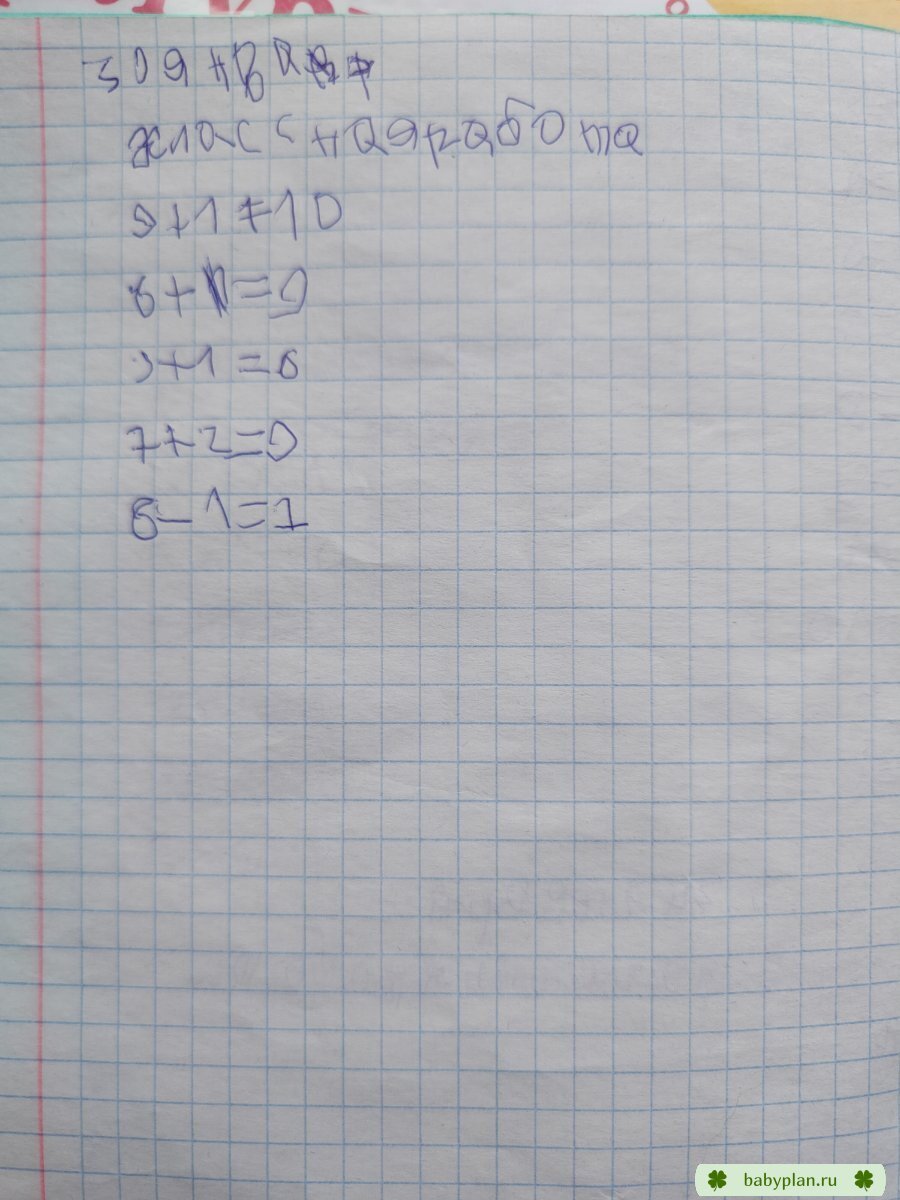 30 янва
классная работа
9+1=10
8+1=9
5+1=6
7+2=9
8-1=1
babyplan.ru